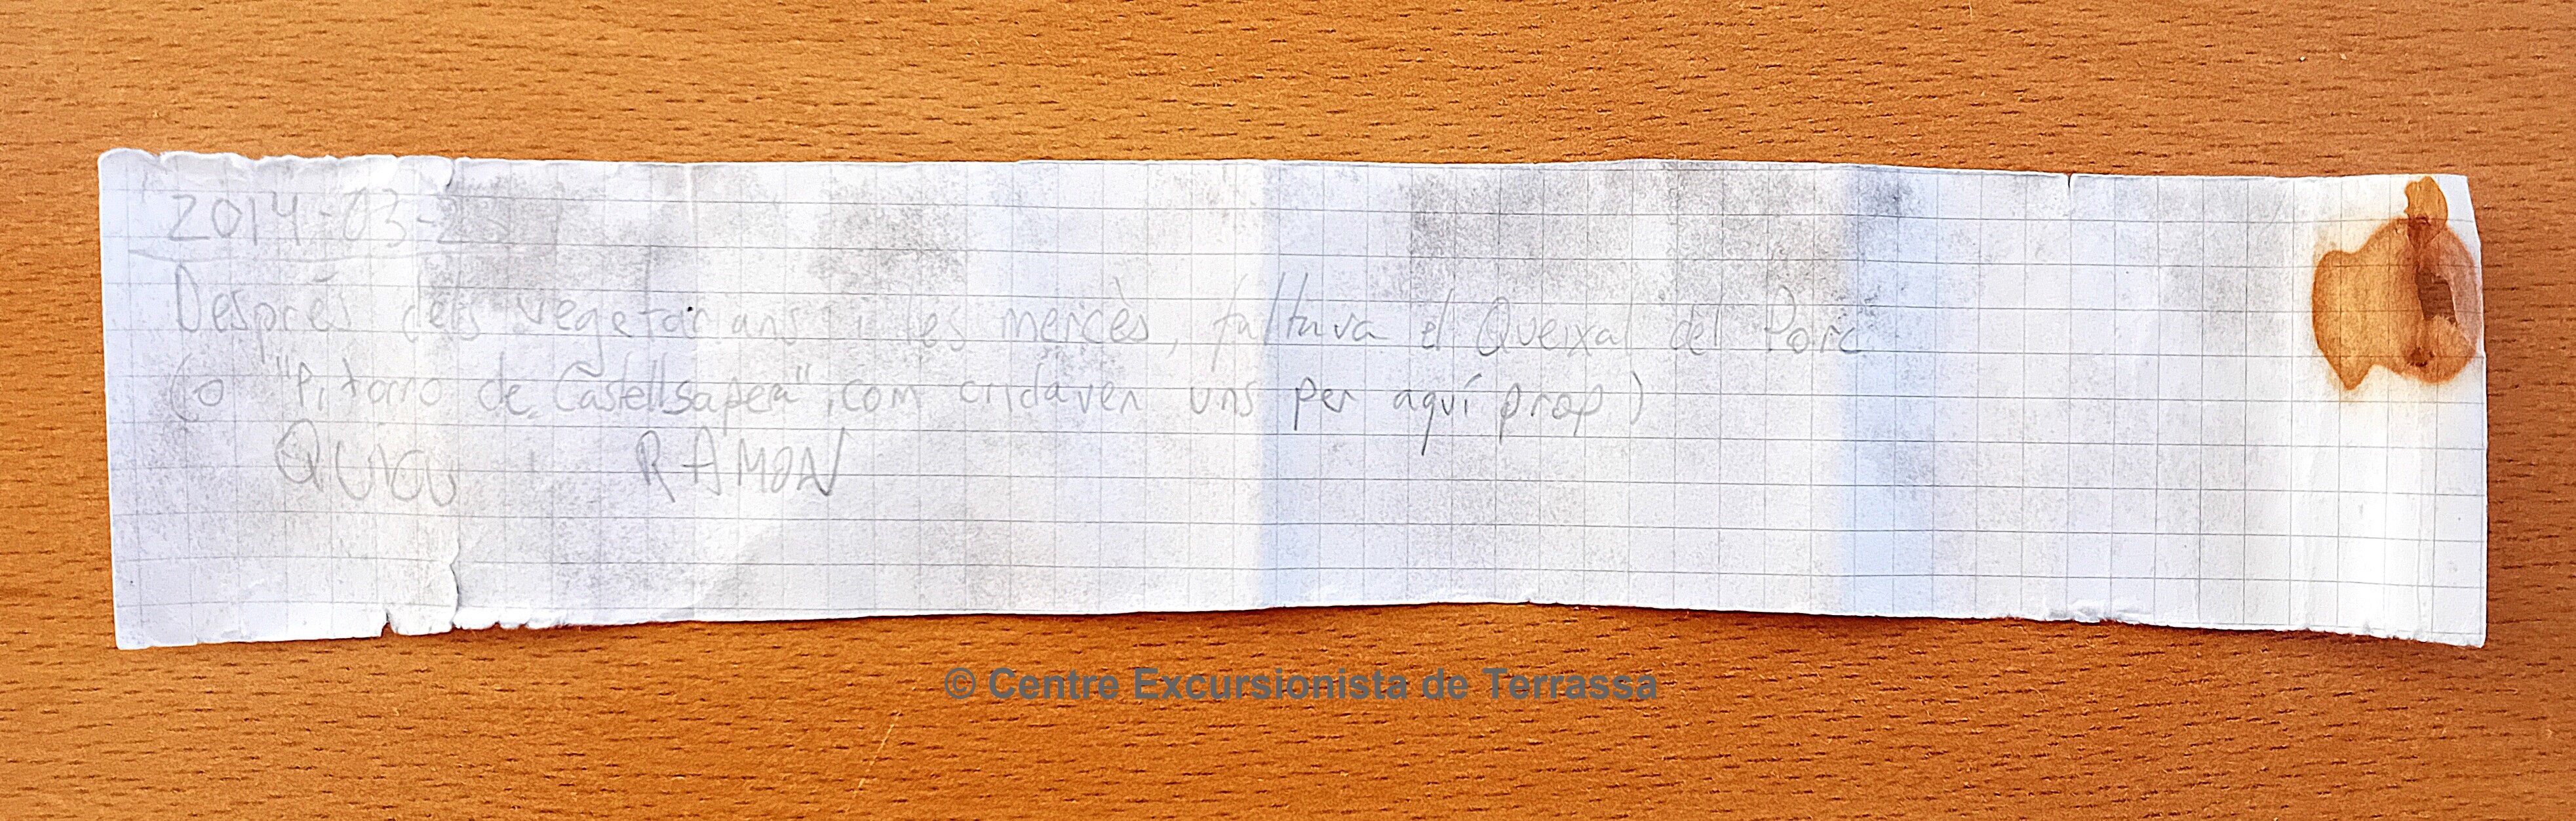 2014-03-23
Després dels vegetarians i les mercès, faltava el Queixal del Porc
(o "Pitorro de Castellsapera", com cridaven uns per aquí prop)
QUICU i RAMON
© Centre Excursionista de Terrassa